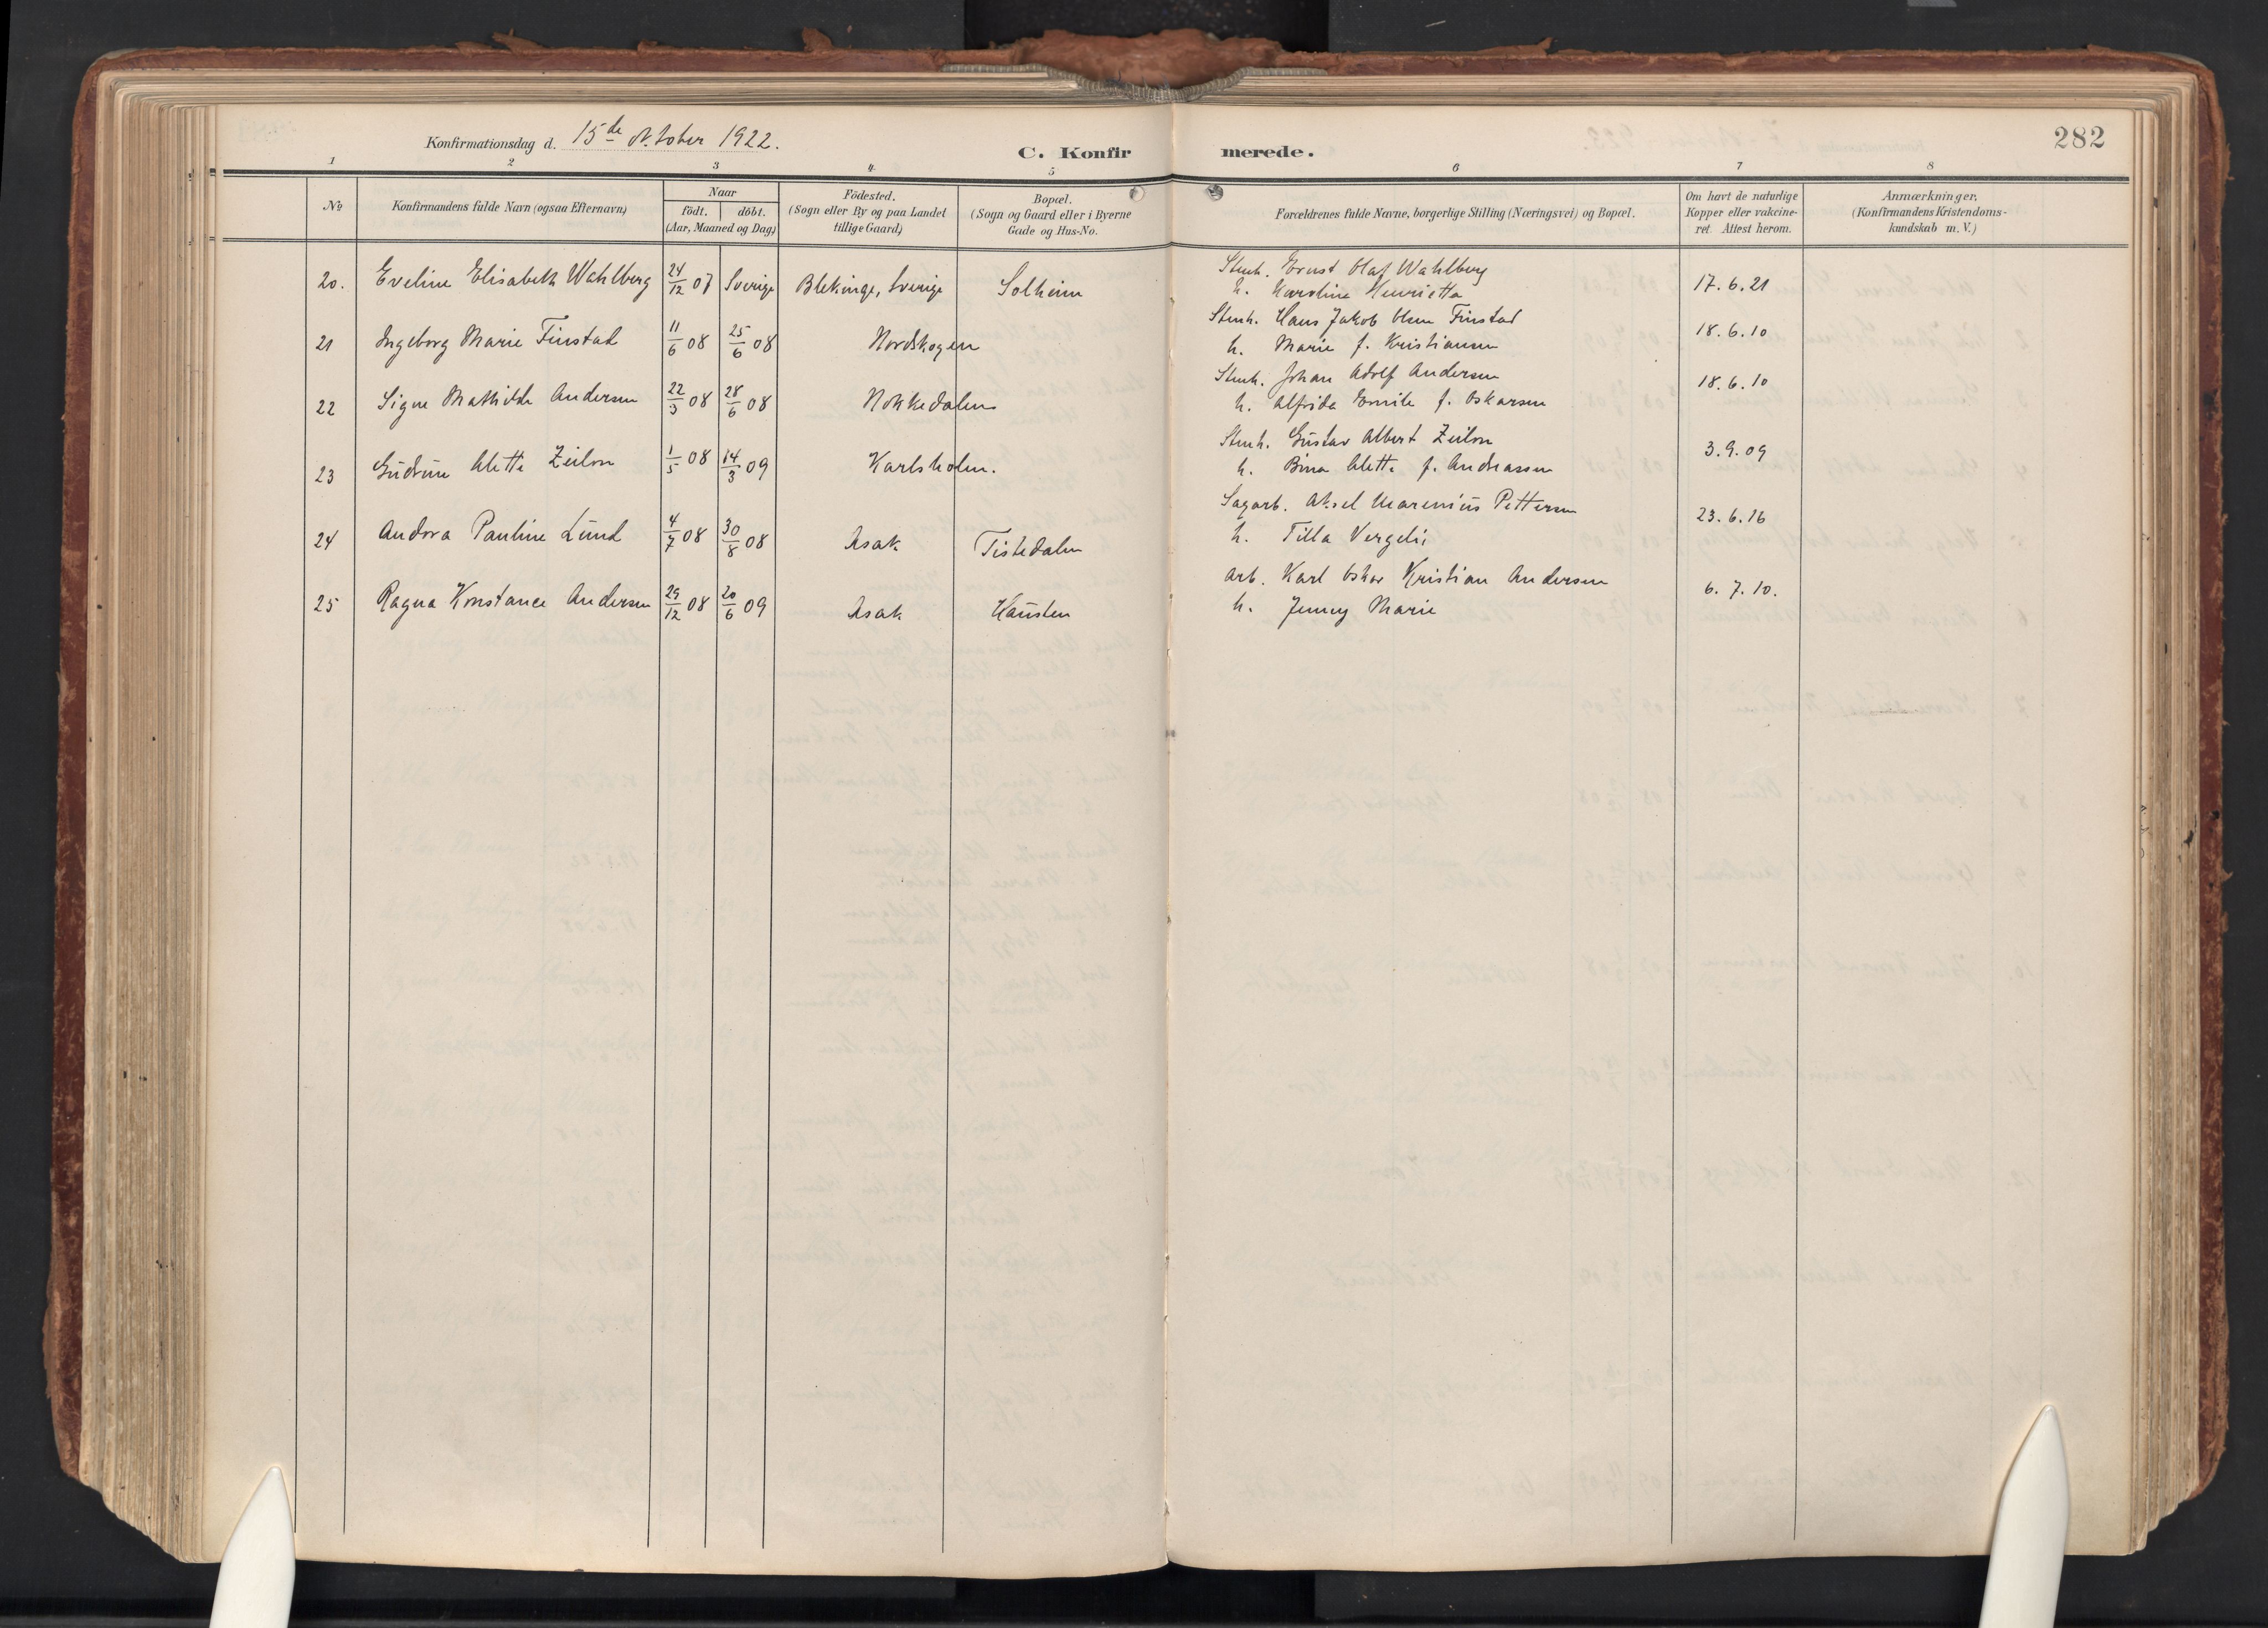 Konfirmationsdag d. 15de October 1922.
C. Konfir merede.
282
1 2 3 4 5 6 7 8
No
Konfirmandens fulde Navn (ogsaa Efternavn)
Naar
födt. döbt.
(Aar, Maaned og Dag)
Födested.
(Sogn eller By og paa Landet
tillige Gaard)
Bopæl.
(Sogn og Gaard eller i Byerne
Gade og Hus-No.
Forældrenes fulde Navne, borgerlige Stilling (Næringsvei) og Bopæl.
Om havt de naturlige
Kopper eller vakcine-
ret. Attest herom.
Anmærkninger,
(Konfirmandens Kristendoms-
kundskab m. V.)
20. Eveline Elisabeth Wahlberg 24/12 07 Sverige Blekinge, Sverige Solheim Stenh. Ernst Olaf Wahlberg
h. Karoline Henrietta 17.6.21
21 Ingeborg Marie Finstad 11/6 08 25/6 08 Nordskogen Stenh. Hans Jakob Olsen Finstad
h. Marie f. Kristiansen 18.6.10
22 Signe Mathilde Andersen 22/3 08 28/6 08 Nokkedalen Stenh. Johan Adolf Andersen
h. Alfrida Emilie f. Oskarsen 18.6.10
23 Gudrun Alette Zeilon 1/5 08 14/3 09 Karlsholm. Stenh. Gustav Albert Zeilon
h. Bina Alette f. Andreassen 3.9.09
24 Andora Pauline Lund 4/7 08 30/8 08 Asak Tistedalen Sagarb. Aksel Marenius Pettersen
h. Tilla Vergeli 23.6.16
25 Ragna Konstance Andersen 29/12 08 20/6 09 Asak Hausten Arb. Karl Oskar Kristian Andersen
h. Jenny Marie 6.7.10.